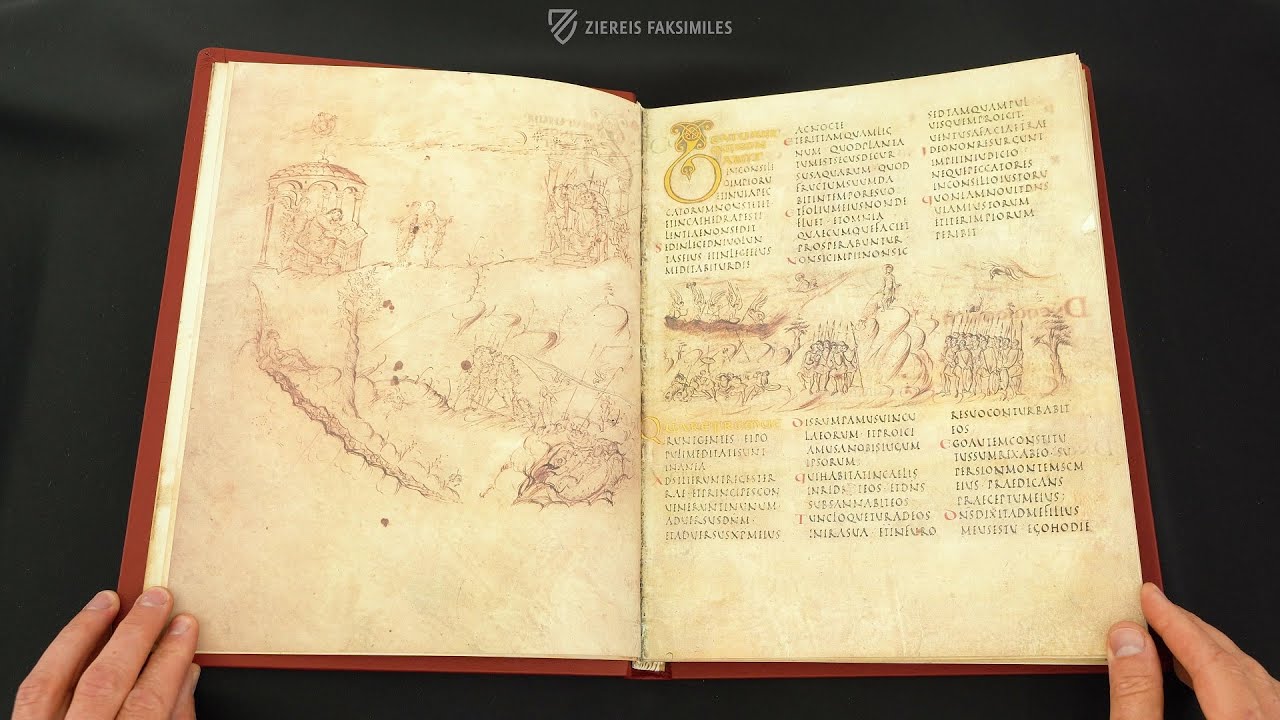 ZIEREIS FAKSIMILES
INCONSILI
OIMPIORU
ETINUIAPEC
CATORUMNONSTETIT
ETINCATHEDRAPESTI
LENTIAENONSEDIT
SEDINLEGEDNIUOLUN
TASEIUS ETINLEGEEIUS
MEDITABITURDIE
ACNOCTE
ETERITTAMQUAMLIG
NUM QUODPLANTA
TUMESTSECUSDECUR
SUSAQUARUM QUOD
FRUCTUMSUUMDA
BITINTEMPORESUO
ETFOLIUMEIUSNONDE
FLUET ETOMNIA
QUAECUMQUEFACIET
PROSPERABUNTUR
NONSICIMPIINONSIC
SEDTAMQUAMPUL
UISQUEMPROICIT
UENTUSAFACIETERRAE
IDEONONRESURGUNT
IMPIIINIUDICIO
NEQUEPECCATORES
INCONSILIOIUSTORU
QUONIAMNOUITDNS
UIAMIUSTORUM
ETITERIMPIORUM
PERIBIT
RUNTGENTES ETPO
PULIMEDITATISUNT
INANIA
ADSTITERUNTREGESTER
RAE ETPRINCIPESCON
UENERUNTINUNUM
ADUERSUSDNM
ETADUERSUSXPMEIUS
DISRUMPAMUSUINCU
LAEORUM ETPROICI
AMUSANOBISIUGUM
IPSORUM
QUIHABITATINCAELIS
INRIDET EOS ETDNS
SUBSANNABITEOS
TUNCLOQUETURADEOS
INIRASUA ETINFURO
RESUOCONTURBABIT
EOS
EGOAUTEMCONSTITU
TUSSUMREXABEO SU
PERSIONMONTEMSCM
EIUS PRAEDICANS
PRAECEPTUMEIUS
DNSDIXITADMEFILIUS
MEUSESTU EGOHODIE